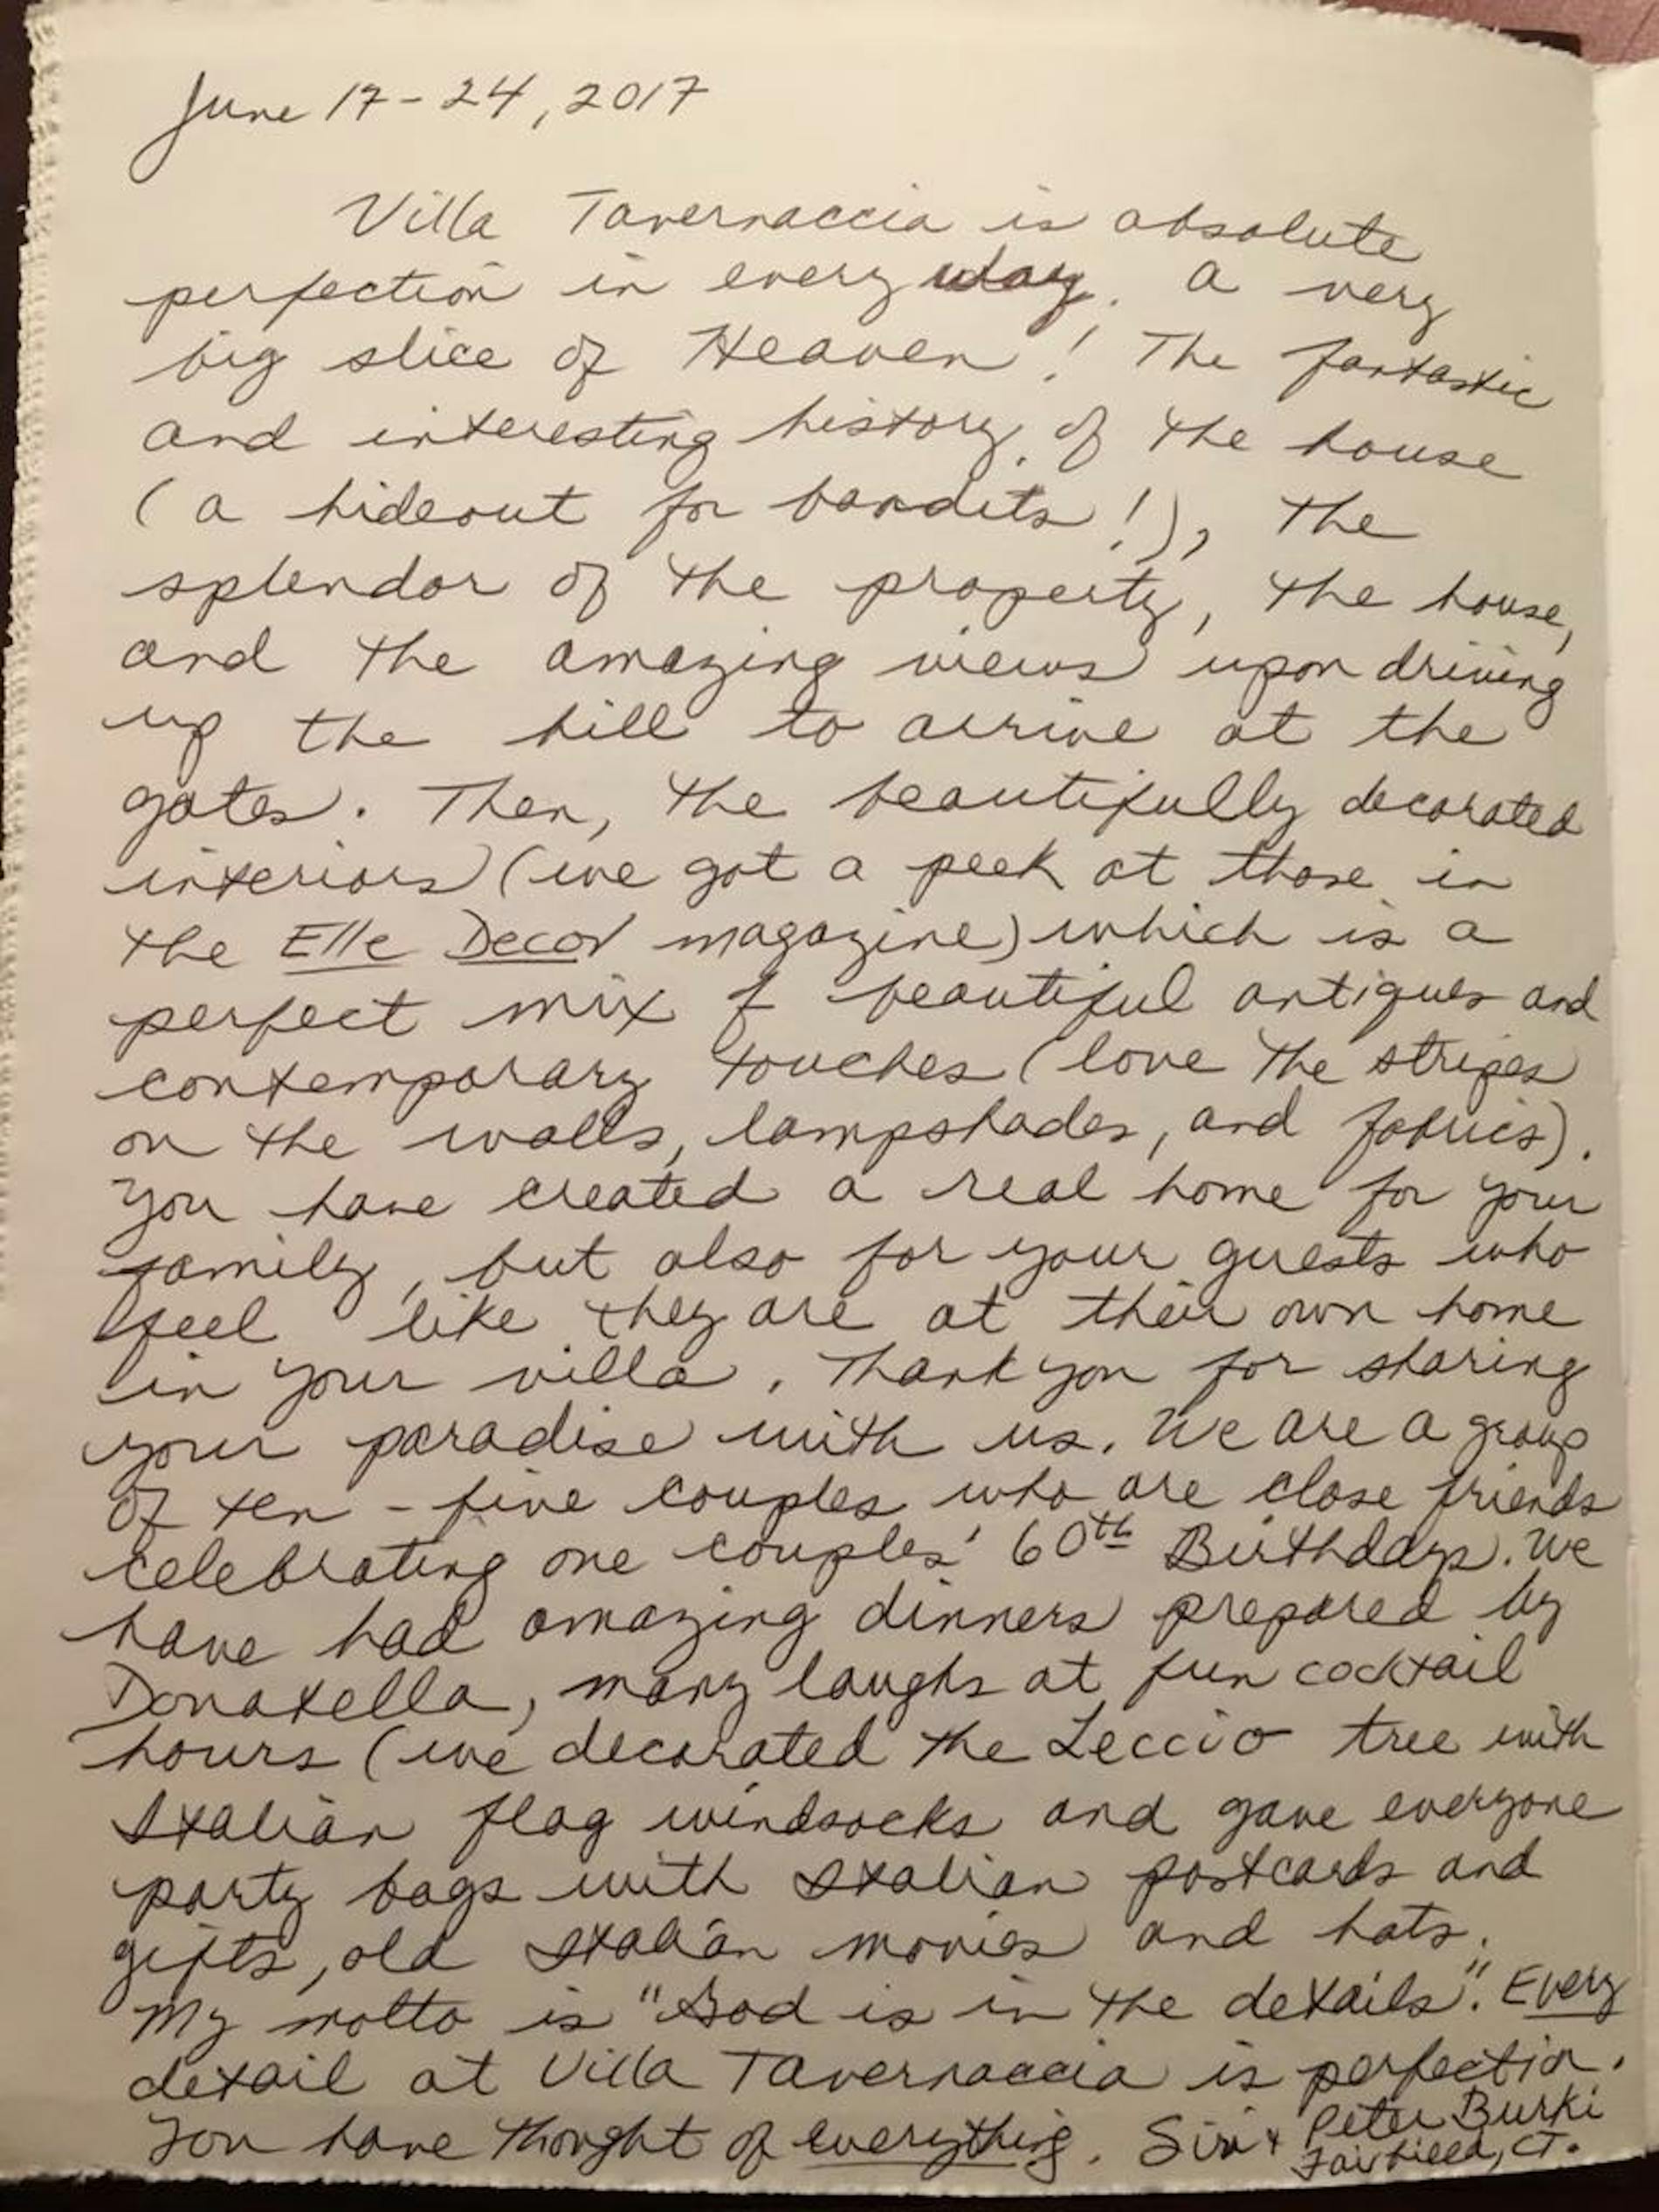 June 17-24, 2017
Villa Tavernaccia is absolute
perfection in every way. A very
big slice of Heaven! The fantastic
and interesting history of the house
(a hideout for bandits!), the
splendor of the property, the house,
and the amazing views upon driving
up the hill to arrive at the
gates. Then, the beautifully decorated
interiors (we got a peek at those in
the Elle Decor magazine) which is a
perfect mix of beautiful antiques and
contemporary touches (love the stripes
on the walls, lampshades, and fabrics).
You have created a real home for your
family, but also for your guests who
feel like they are at their own home
in your villa. Thank you for sharing
your paradise with us. We are a group
of ten - five couples who are close friends
celebrating one couples' 60th Birthdays. We
have had amazing dinners prepared by
Donatella, many laughs at fun cocktail
hours (we decorated the Leccio tree with
Italian flag windsocks and gave everyone
party bags with Italian postcards and
gifts, old Italian movies and hats.
My motto is "God is in the details". Every
detail at Villa Tavernaccia is perfection.
You have thought of everything. Siri + Peter Burki
Fairfield, CT.